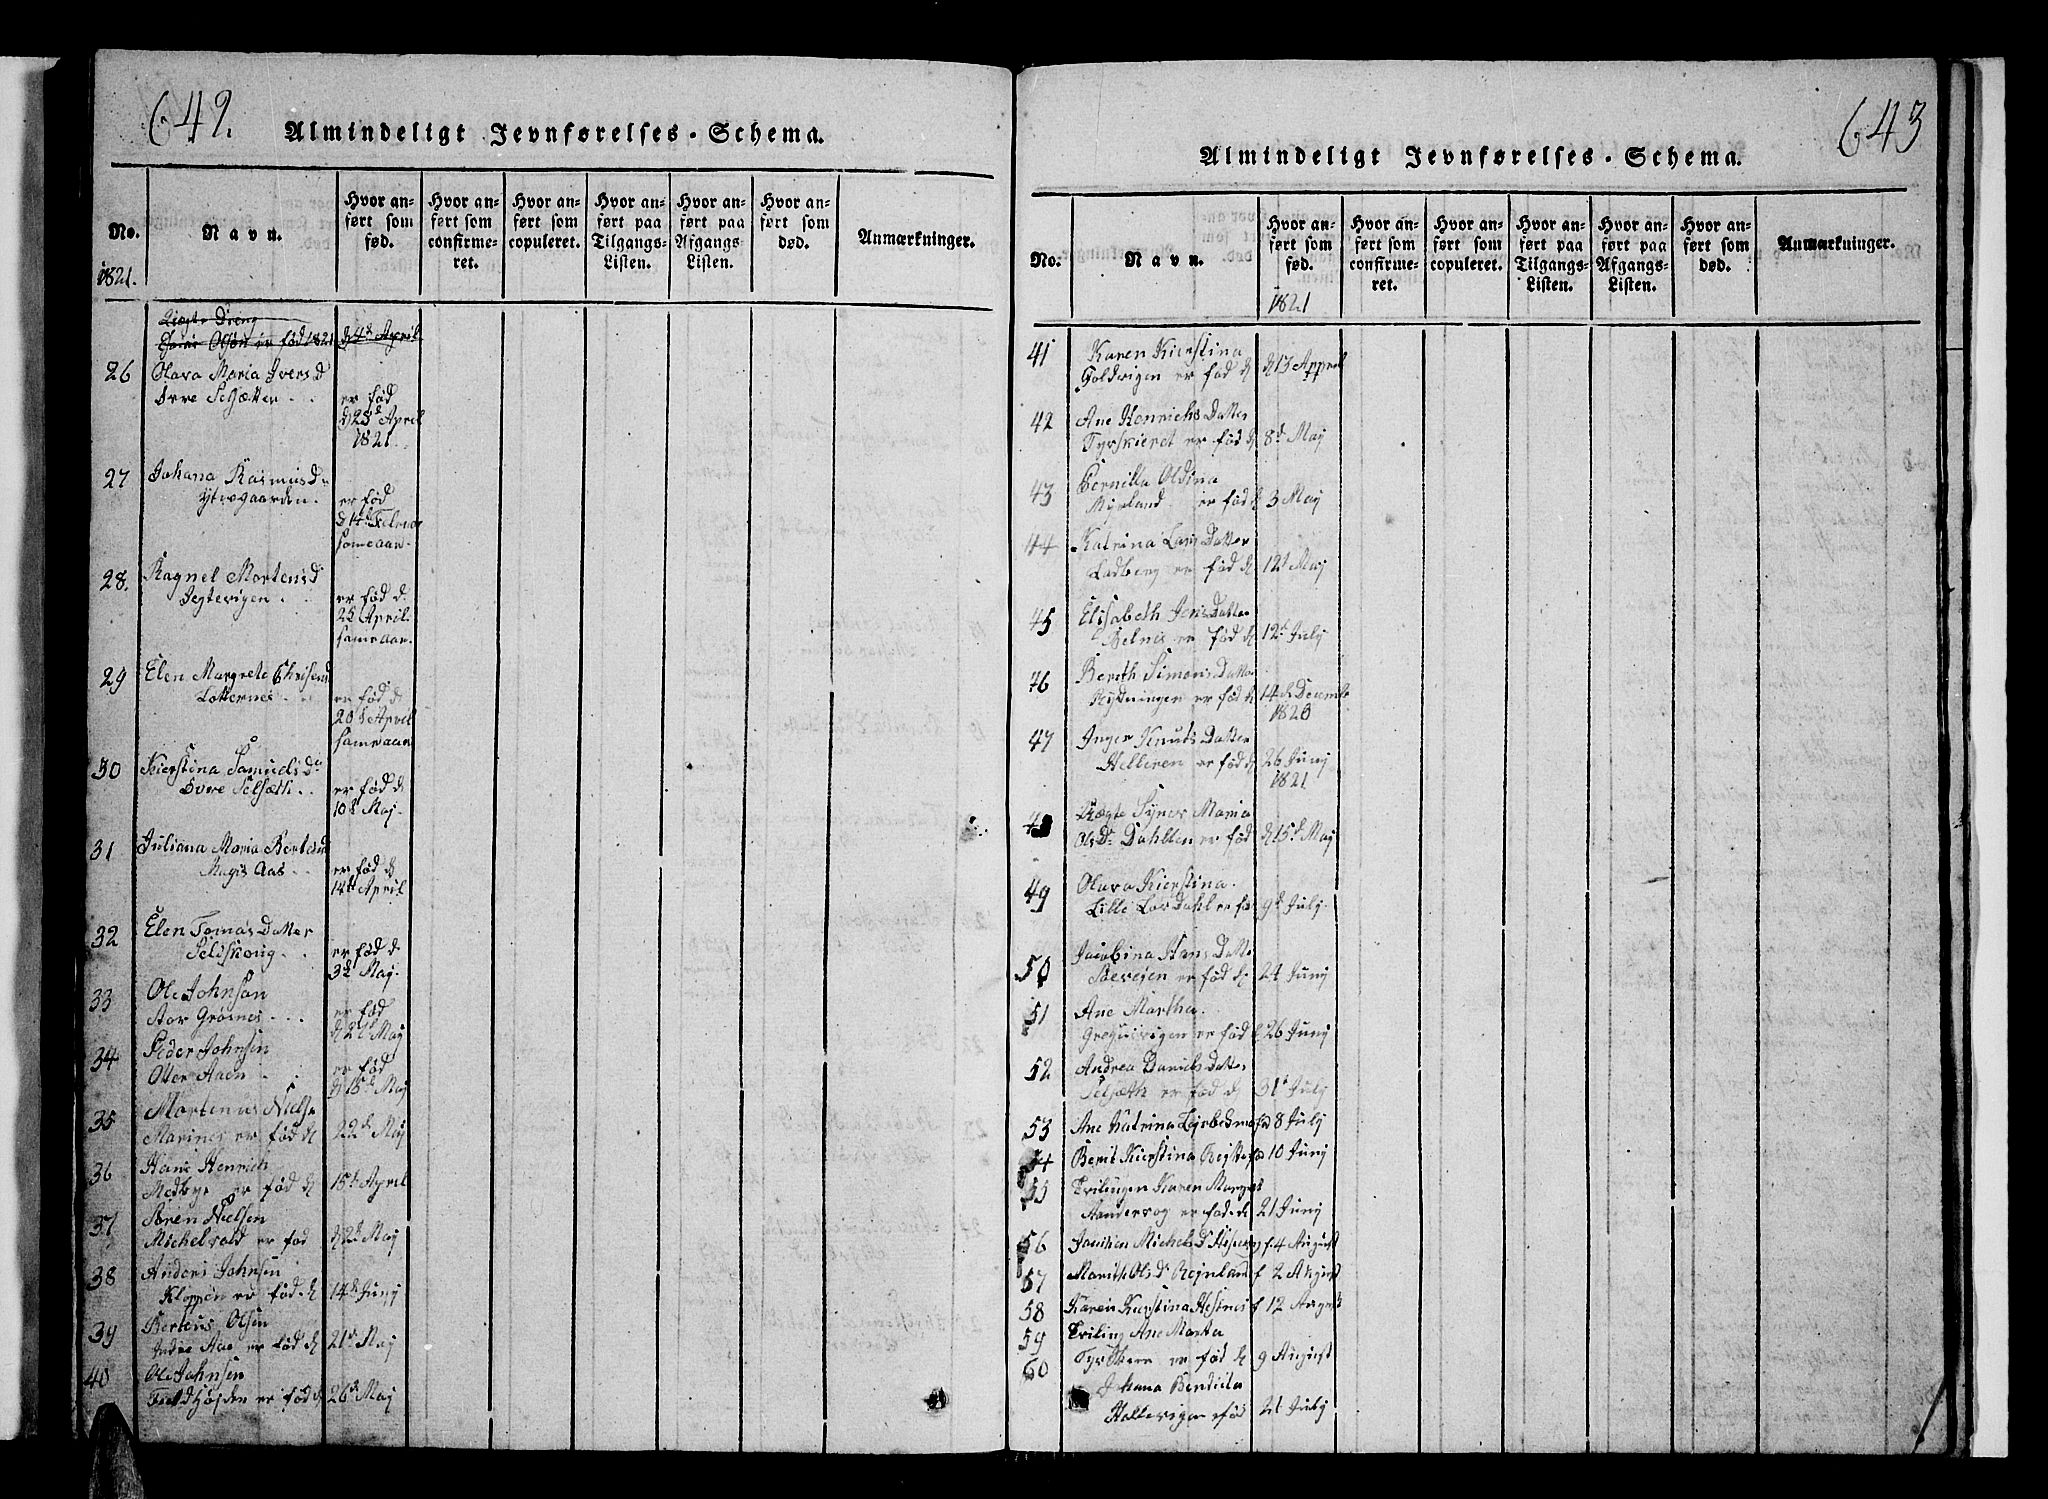 642.
Almindeligt Jevnførelses-Schema.
No.
Navn.
Hvor anført som fød.
Hvor anført som confirmeret.
Hvor anført som copuleret.
Hvor anført paa Tilgangs-Listen.
Hvor anført paa Afgangs-Listen.
Hvor anført som død.
Anmærkninger.
1821.
Uægte Dreng
Olsøn er fød 1821 d 4de April
26 Olava Maria Ivers D
Øvre Selsætter er fød
d 25d April
1821.
27 Johana Rasmus D
Ytregaarden er fød
d 14d Februar
samme aar
28. Ragnel Mortens D
Jegtevigen er fød d.
25 April
samme aar.
29 Elen Margrete Christens
Lotternes er fød d
20d April
samme aar
30 Kierstina Samuels D
Øvre Selsæth er fød d
10d Maj.
31 Juliana Maria Bertens
Magis Aas er fød d
14de April
32 Elen Tomas Datter
er fød d
3d Maj.
33 Ole Johnsøn
Stor Grøsnes er fød
d 2d Maj
34 Peder Johnsen
Otter Aaen er fød
d 15d Maj
35 Mortenus Niels
Marines er fød d 22d Maj
36 Hans Henrich
Medbye er fød d 15d April
37 Søren Nielsen
Michelvold er fød d 2d Maj
38 Anders Johnsen
Kloppen er fød d 14d Junj
39 Berteus Olsen
Indre Aae er fød d 21d Maj
40 Ole Johnsen
er fød d 26d Maj
643
Almindeligt Jevnførelses-Schema.
No.
Navn.
Hvor anført som fød.
1821
Hvor anført som confirmeret.
Hvor anført som copuleret.
Hvor anført paa Tilgangs-Listen.
Hvor anført paa Afgangs-Listen.
Hvor anført som død.
Anmærkninger.
41 Karen Kierstina
er fød d 13 Appril
42 Ane Henrichs Datter
Tyrskieret er fød d 8d Maj
43 Pernilla Oldina
Myrland er fød d 3 Maj
44 Katrina Lars Datter
Ladberg er fød d 12d Maj
45 Elisabeth Jens Datter
Belnes er fød d 12d July
46 Bereth Simons Datter
Rydningen er fød d 14d December
1820
47 Inger Knuds Datter
Helleren er fød d 26 Junj
1821
48 Uægte Synev Maria
Ols D. Dahllen er fød d 15d Maj
49 Olava Kierstina
Lille Lavdahl er fød 9d July
50 Jacobina Hans Datter
er fød d 24 Junj
51 Ane Martha.
er fød d 26 Junj
52 Andrea Daniels Datter
Selsæth er fød d 31d July
53 Ane Katrina fød 8 July
54 Berit Kierstina fød 10 Junj
55 Tvilingen Karen Margret
er fød d 21 Junj
56 Michels D f. 4 August
57 Marith Ols D. Rejnland f 2 August
58 Karen Kierstina Hestnes f 12 August
59 Tviling Ane Marta
60 er fød d 9 August
Johana Bendicta
Hallevigen fød 21 July